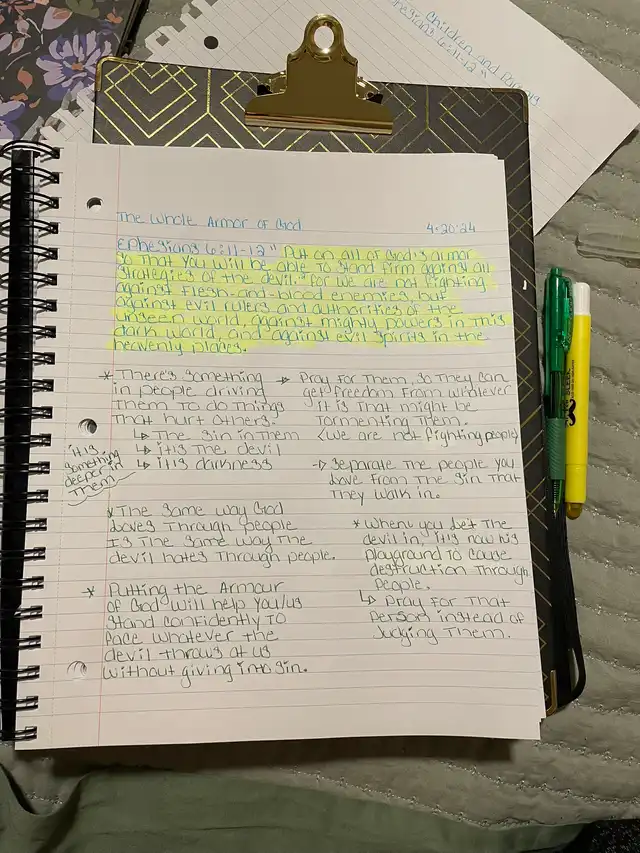 Children and Parents
Ephesians 6:11-12"
The Whole Armor of God 4-20-24
Ephesians 6:11-12 " Put on all of God's armor
so that you will be able to stand firm against all
strategies of the devil. "For we are not fighting
against flesh-and-blood enemies, but
against evil rulers and authorities of the
unseen world, against mighty powers in this
dark world, and "against evil spirits in the
heavenly places.
* There's something
in people driving
them to do things
that hurt others.
↳ The sin in them
↳ it is the devil
↳ it is darkness
it is
something
deeper in
them
* The same way God
Loves through people
Is the same way the
devil hates through people.
* Putting the Armour
of God will help you/us
stand confidently to
face whatever the
devil throws at us
without giving into sin.
→ Pray for them, so they can
get freedom from whatever
it is that might be
tormenting them.
(we are not fighting people)
→ Separate the people you
Love from the sin that
they walk in.
* When you let the
devil in, it is now his
playground to cause
destruction through
people.
↳ Pray for that
person instead of
Judging them.